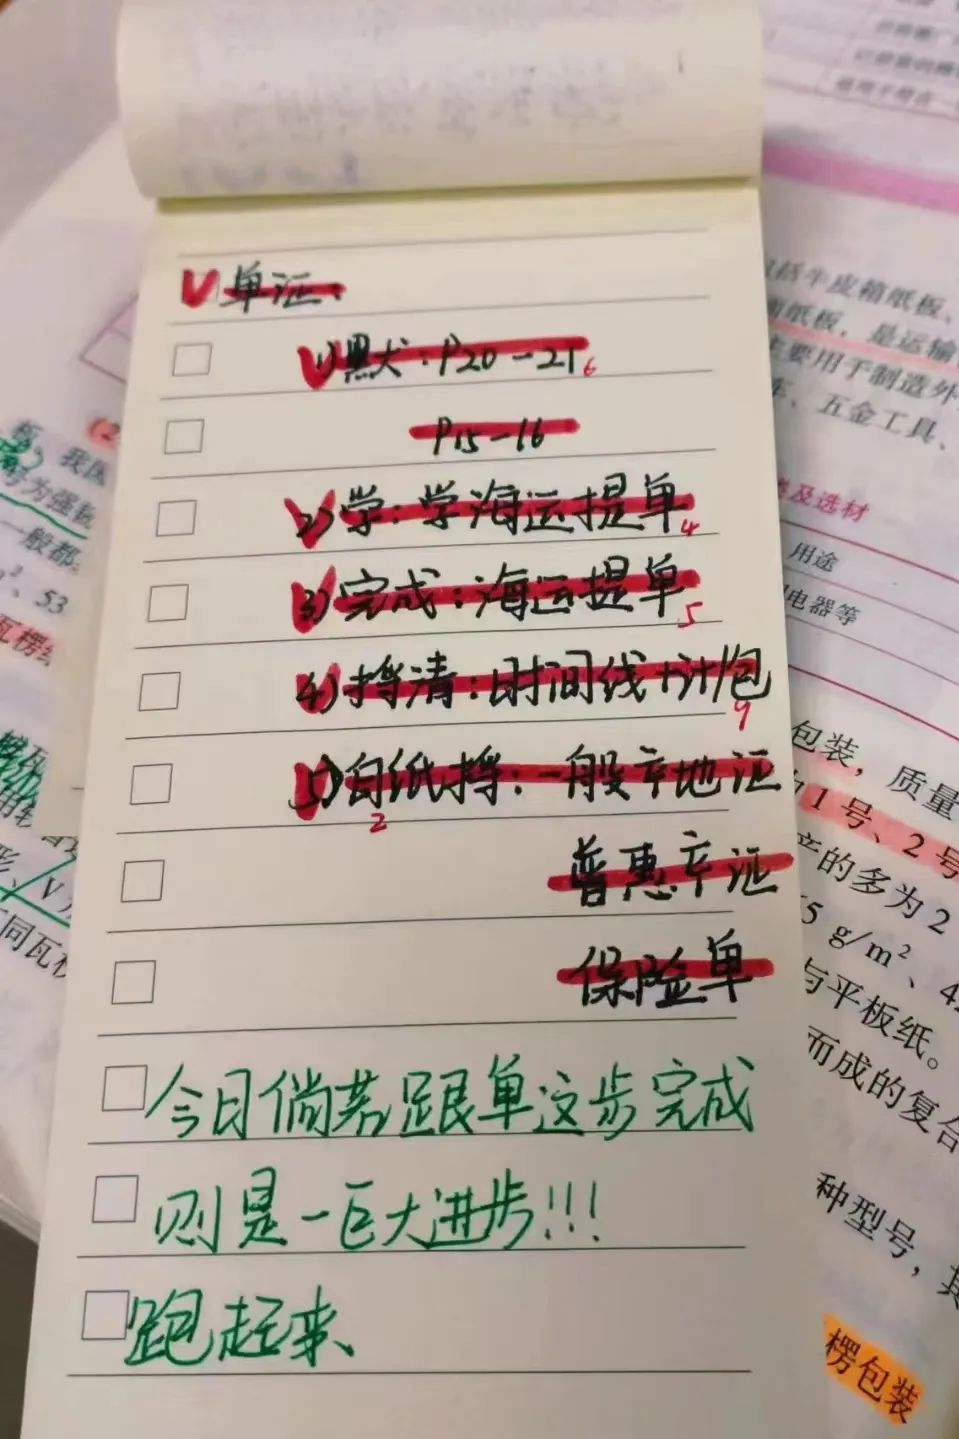 单证：
1)黑犬：P20-21
6
P15-16
2)学：学海运提单
4
3)完成：海运提单
5
4)捋清：时间线+计/包
9
5)白纸捋：一般产地证
2
普惠产证
保险单
今日倘若跟单这步完成
则是一巨大进步!!!
跑起来、
我国
号为强
一般都
53
瓦楞
同瓦
括牛皮箱纸板、
面纸板，是运输
主要用于制造外
五金工具、
及选材
用途
电器等
包装，质量
1号、2号
产的多为2
5 g/m²、42
与平板纸。
而成的复合
种型号，其
楞包装